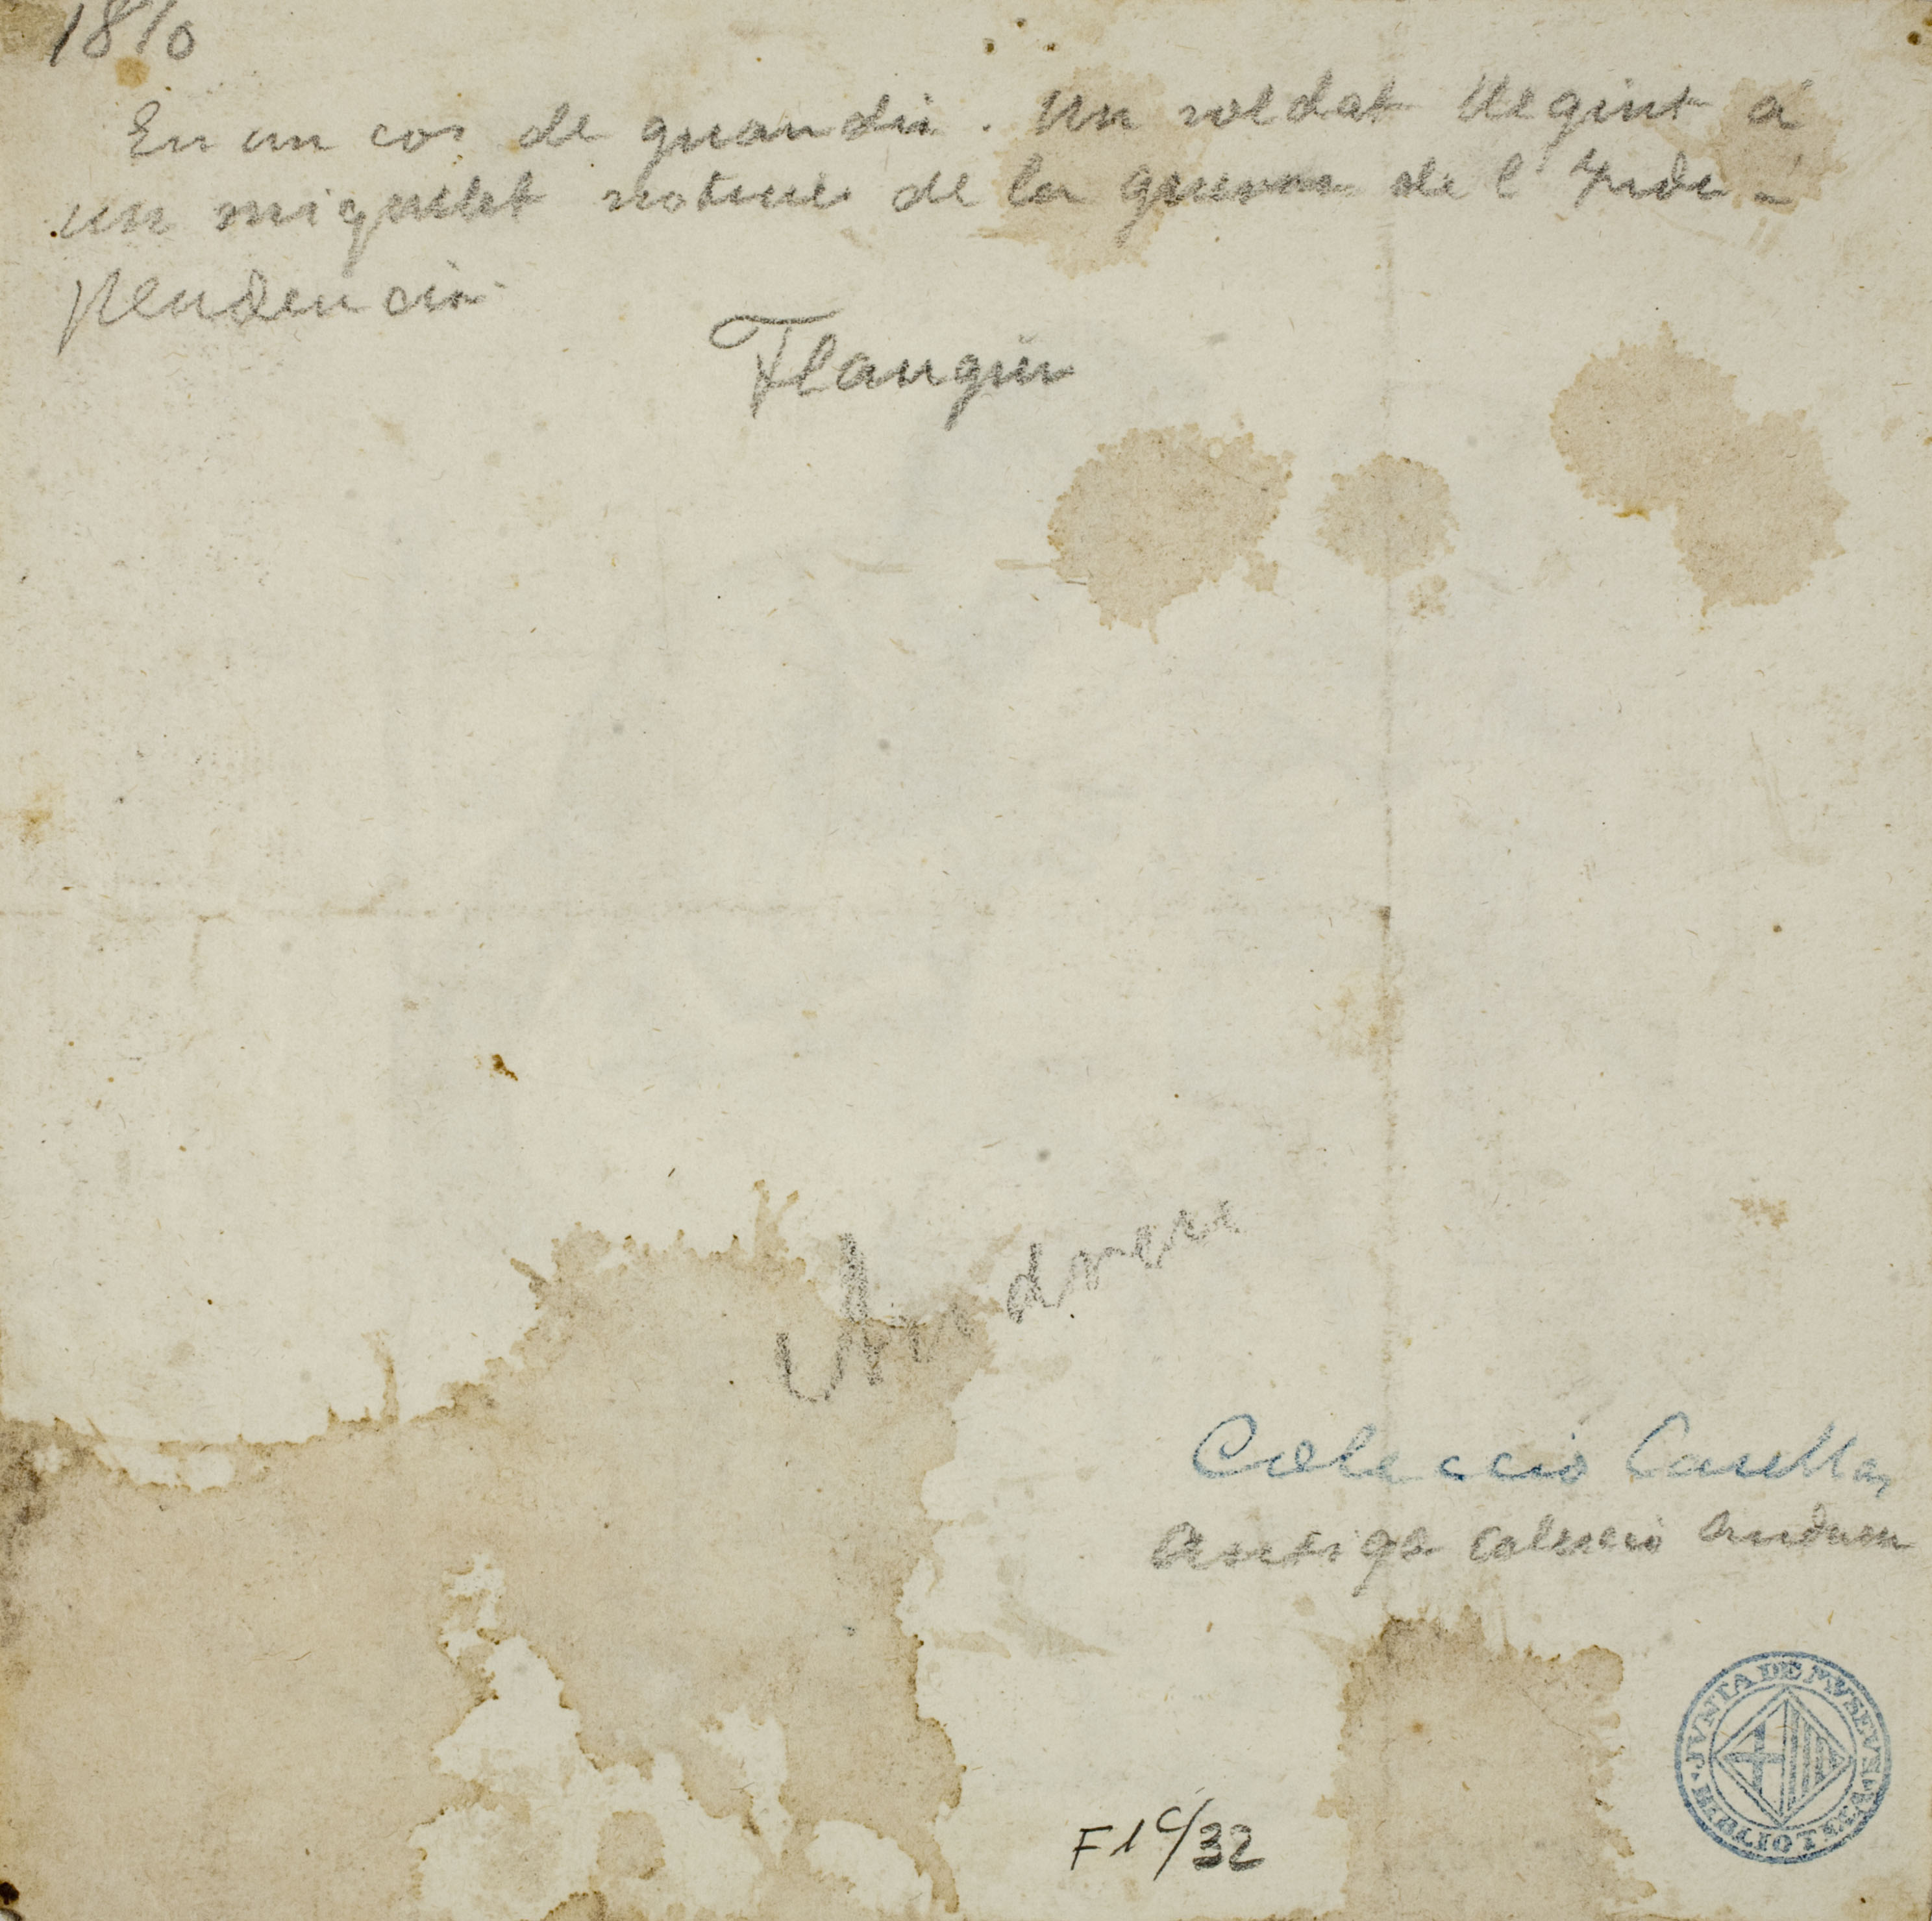 1810
En un cos de guardia. Un soldat llegint á
un miquelet noticies de la guerra de l'Inde-
pendencia.
Flaugier
Andreu
Colecció Casellas
Antiga colecció Andreu
F1 C/32
JVNTA DE MVSEVS · BIBLIOTECA